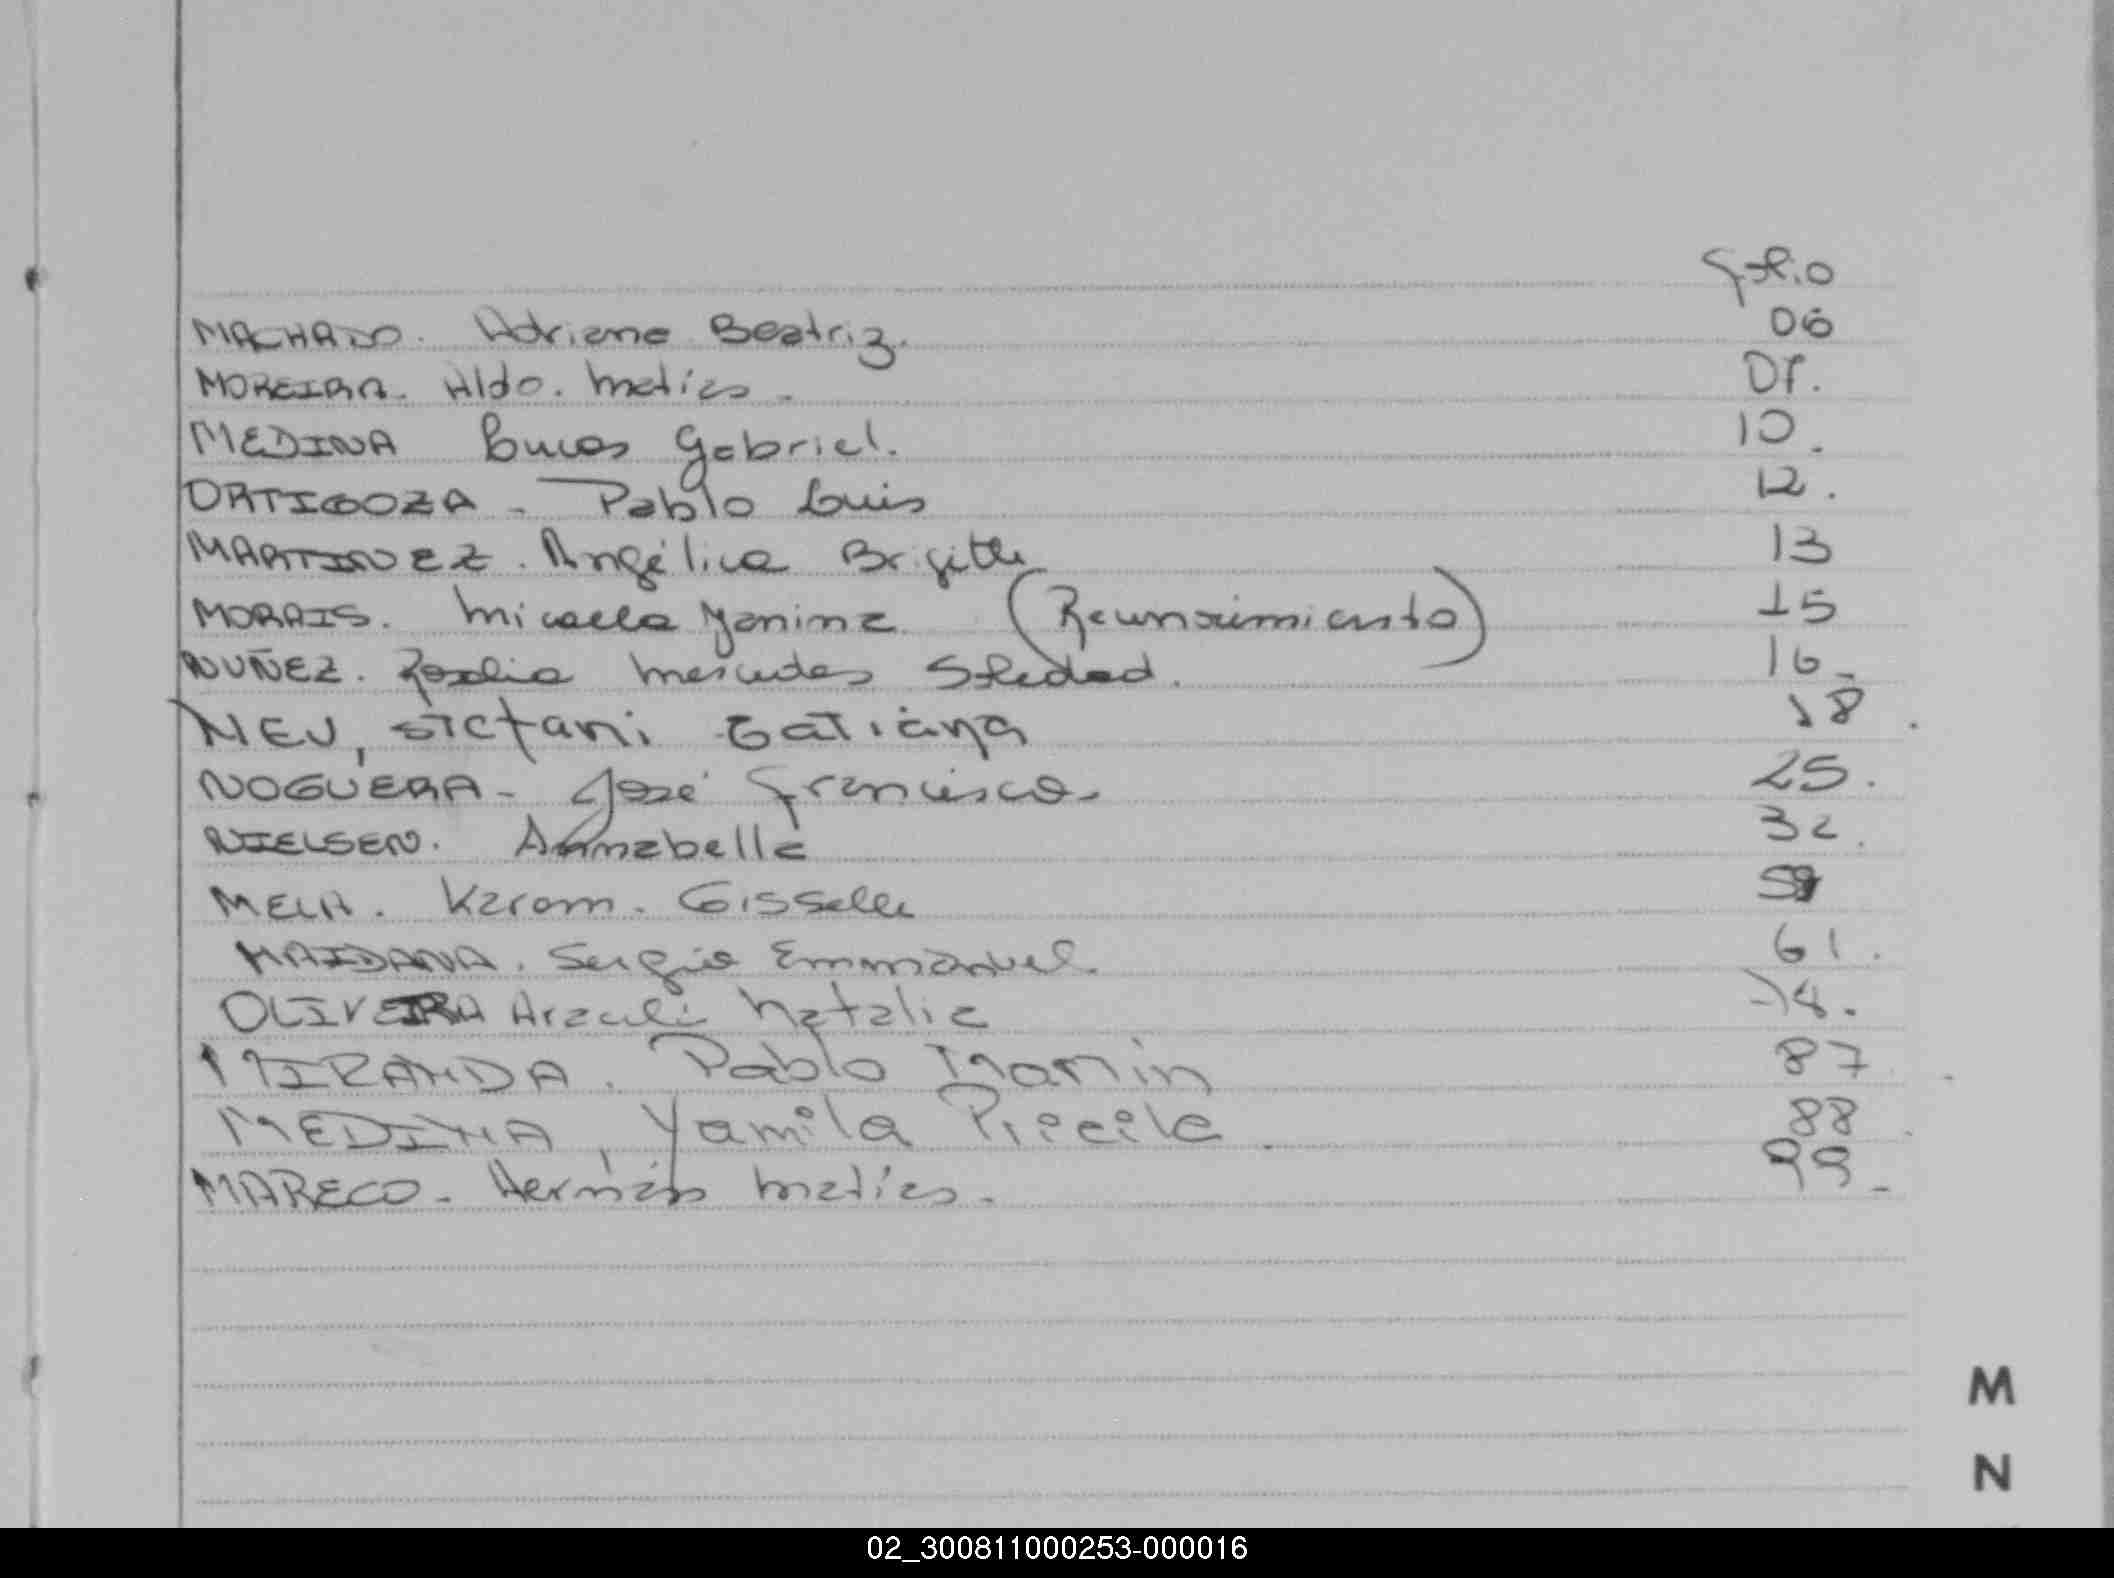 Folio
MACHADO. Adriana Beatriz. 06
MOREIRA. Aldo. Matias. 07.
MEDINA Lucas Gabriel. 10.
ORTIGOZA - Pablo Luis 12.
MARTINEZ. Angélica Brigitte 13
MORAIS. Micaela Yanina (Reconocimiento) 15
NUÑEZ. Rosalia Mercedes Soledad. 16-
NEU, Stefani Tatiana 18.
NOGUERA - José Francisco. 25.
NIELSEN. Annabella 32.
MELA. Karom. Gisselle 59
MAIDANA. Sergio Emmanuel. 61.
OLIVEIRA Araceli Natalia 74.
MIRANDA. Pablo Martin 87
MEDINA, Yamila Priscila. 88
MARECO - Hernán Matias. 99-
M
N
02_300811000253-000016